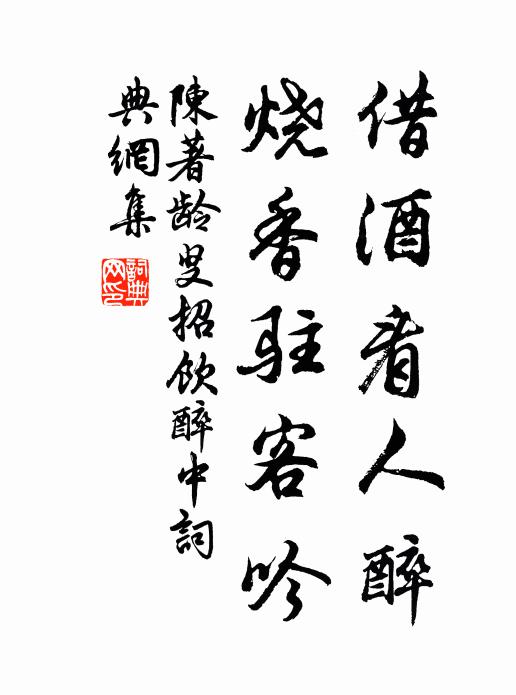 借酒看人醉
烧香驻客吟
陳著龄叟招饮醉中詞
典網集
詞典
网印